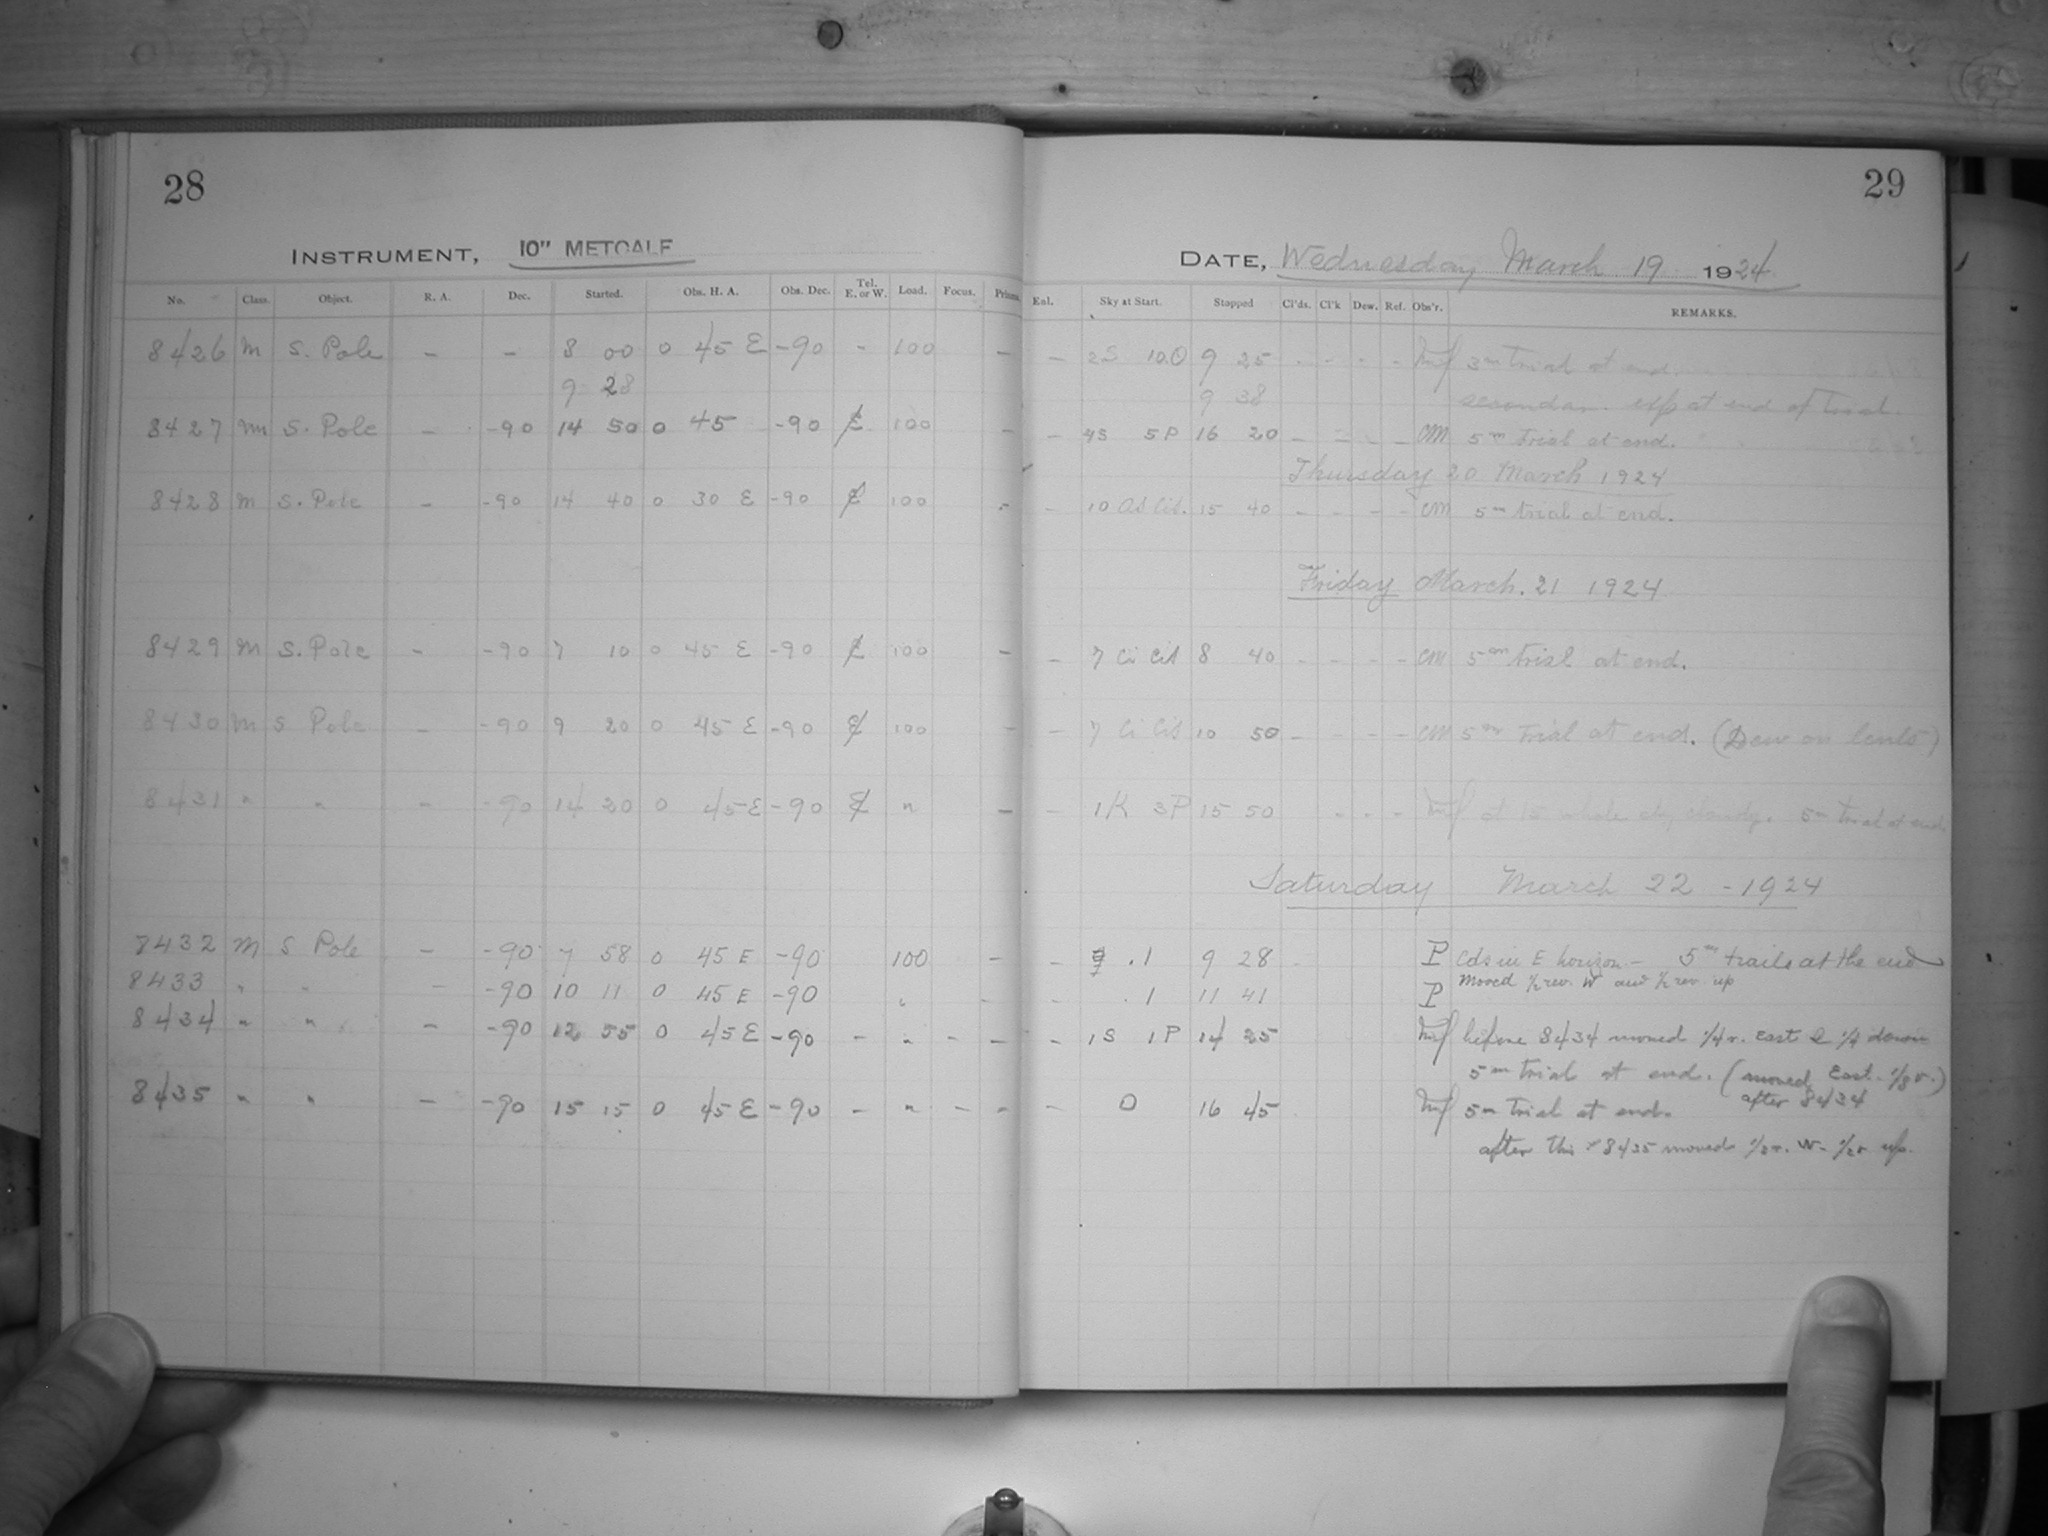 28
29
INSTRUMENT, 10" METCALF
DATE, Wednesday March 19 1924
No. Class. Object. R. A. Dec. Started. Obs. H. A. Obs. Dec. Tel. E. or W. Load. Focus. Prisms. Eal. Sky at Start. Stopped Cl'ds. Cl'k Dew. Ref. Obs'r. REMARKS.
8426 M S. Pole - - 8 00 0 45 E -90 - 100 - - 2S 10.0 9 25 - - - - 3m trial at end.
9 28 9 38 exp at end of trial.
8427 M S. Pole - -90 14 50 0 45 -90 E 100 - - 4S 5P 16 20 - - - - CM 5m trial at end.
Thursday 20 March 1924
8428 M S. Pole - -90 14 40 0 30 E -90 E 100 - - 10 15 40 - - - - CM 5m trial at end.
Friday March. 21 1924
8429 M S. Pole - -90 7 10 0 45 E -90 E 100 - - 7 Ci CiS 8 40 - - - - CM 5m trial at end.
8430 M S Pole - -90 9 20 0 45 E -90 E 100 - - 7 Ci CiS 10 50 - - - - CM 5m Trial at end. (Dew on lens)
8431 " " - -90 14 20 0 45 E -90 E " - - 1K 3P 15 50 - - - at 15 whole sky cloudy. 5m trial at end
Saturday March 22 - 1924
8432 M S Pole - -90 7 58 0 45 E -90 100 - - .1 9 28 P Cds in E horizon - 5m trails at the end
Moved 1/2 rev. W and 1/2 rev up
8433 " " - -90 10 11 0 45 E -90 " - - .1 11 41 P
8434 " " - -90 12 55 0 45 E -90 - " - - - 1S 1P 14 25 before 8434 moved 1/4 r. East & 1/2 down
5m trial at end. (moved East 1/8 r.)
after 8434
8435 " " - -90 15 15 0 45 E -90 - " - - - 0 16 45 5m trial at end.
after this 8435 moved 1/2 r. W - 1/2 r up.